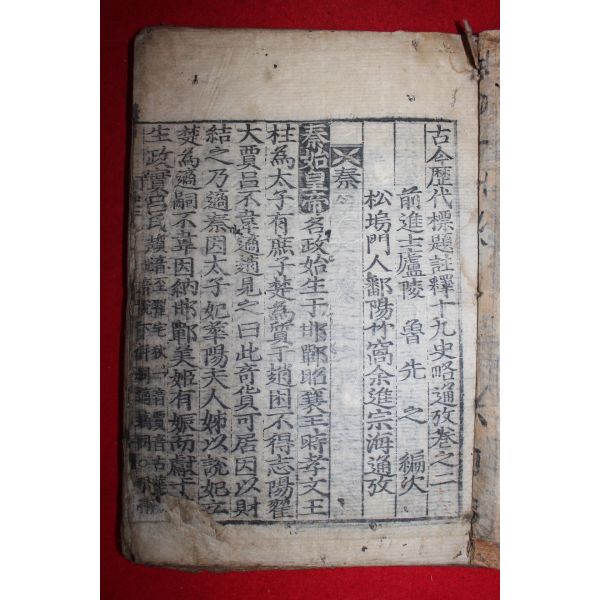 古今歷代標題註釋十九史略通攷卷之二
前進士廬陵 魯先之 編次
松塢門人鄱陽竹窩余進宗海通攷
秦
秦始皇帝名政始生于邯鄲昭襄王時孝文王
柱為太子有庶子楚為質于趙困不得志陽翟
大賈呂不韋適趙見之曰此奇貨可居因以財
結之乃適秦因太子妃華陽夫人姊以說妃立
楚為適嗣不韋因納邯鄲美姬有娠而獻于
生政實呂氏